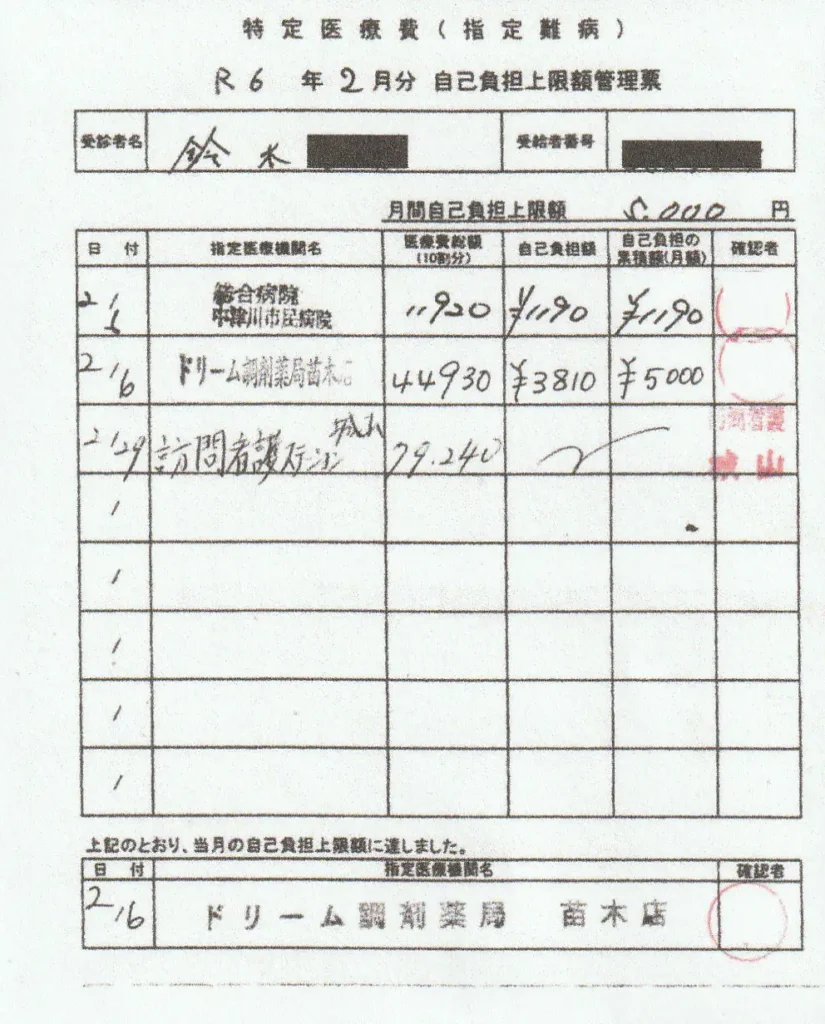 特定医療費(指定難病)
R6年2月分 自己負担上限額管理票
受診者名 鈴木 受給者番号
月間自己負担上限額 5.000 円
日付 指定医療機関名 医療費総額(10割分) 自己負担額 自己負担の累積額(月額) 確認者
2/6 総合病院 中津川市民病院 11920 ¥1190 ¥1190
2/6 ドリーム調剤薬局苗木店 44930 ¥3810 ¥5000
2/29 訪問看護ステーション城山 79.240 訪問看護 城山
/
/
/
/
/
上記のとおり、当月の自己負担上限額に達しました。
日付 指定医療機関名 確認者
2/6 ドリーム調剤薬局 苗木店